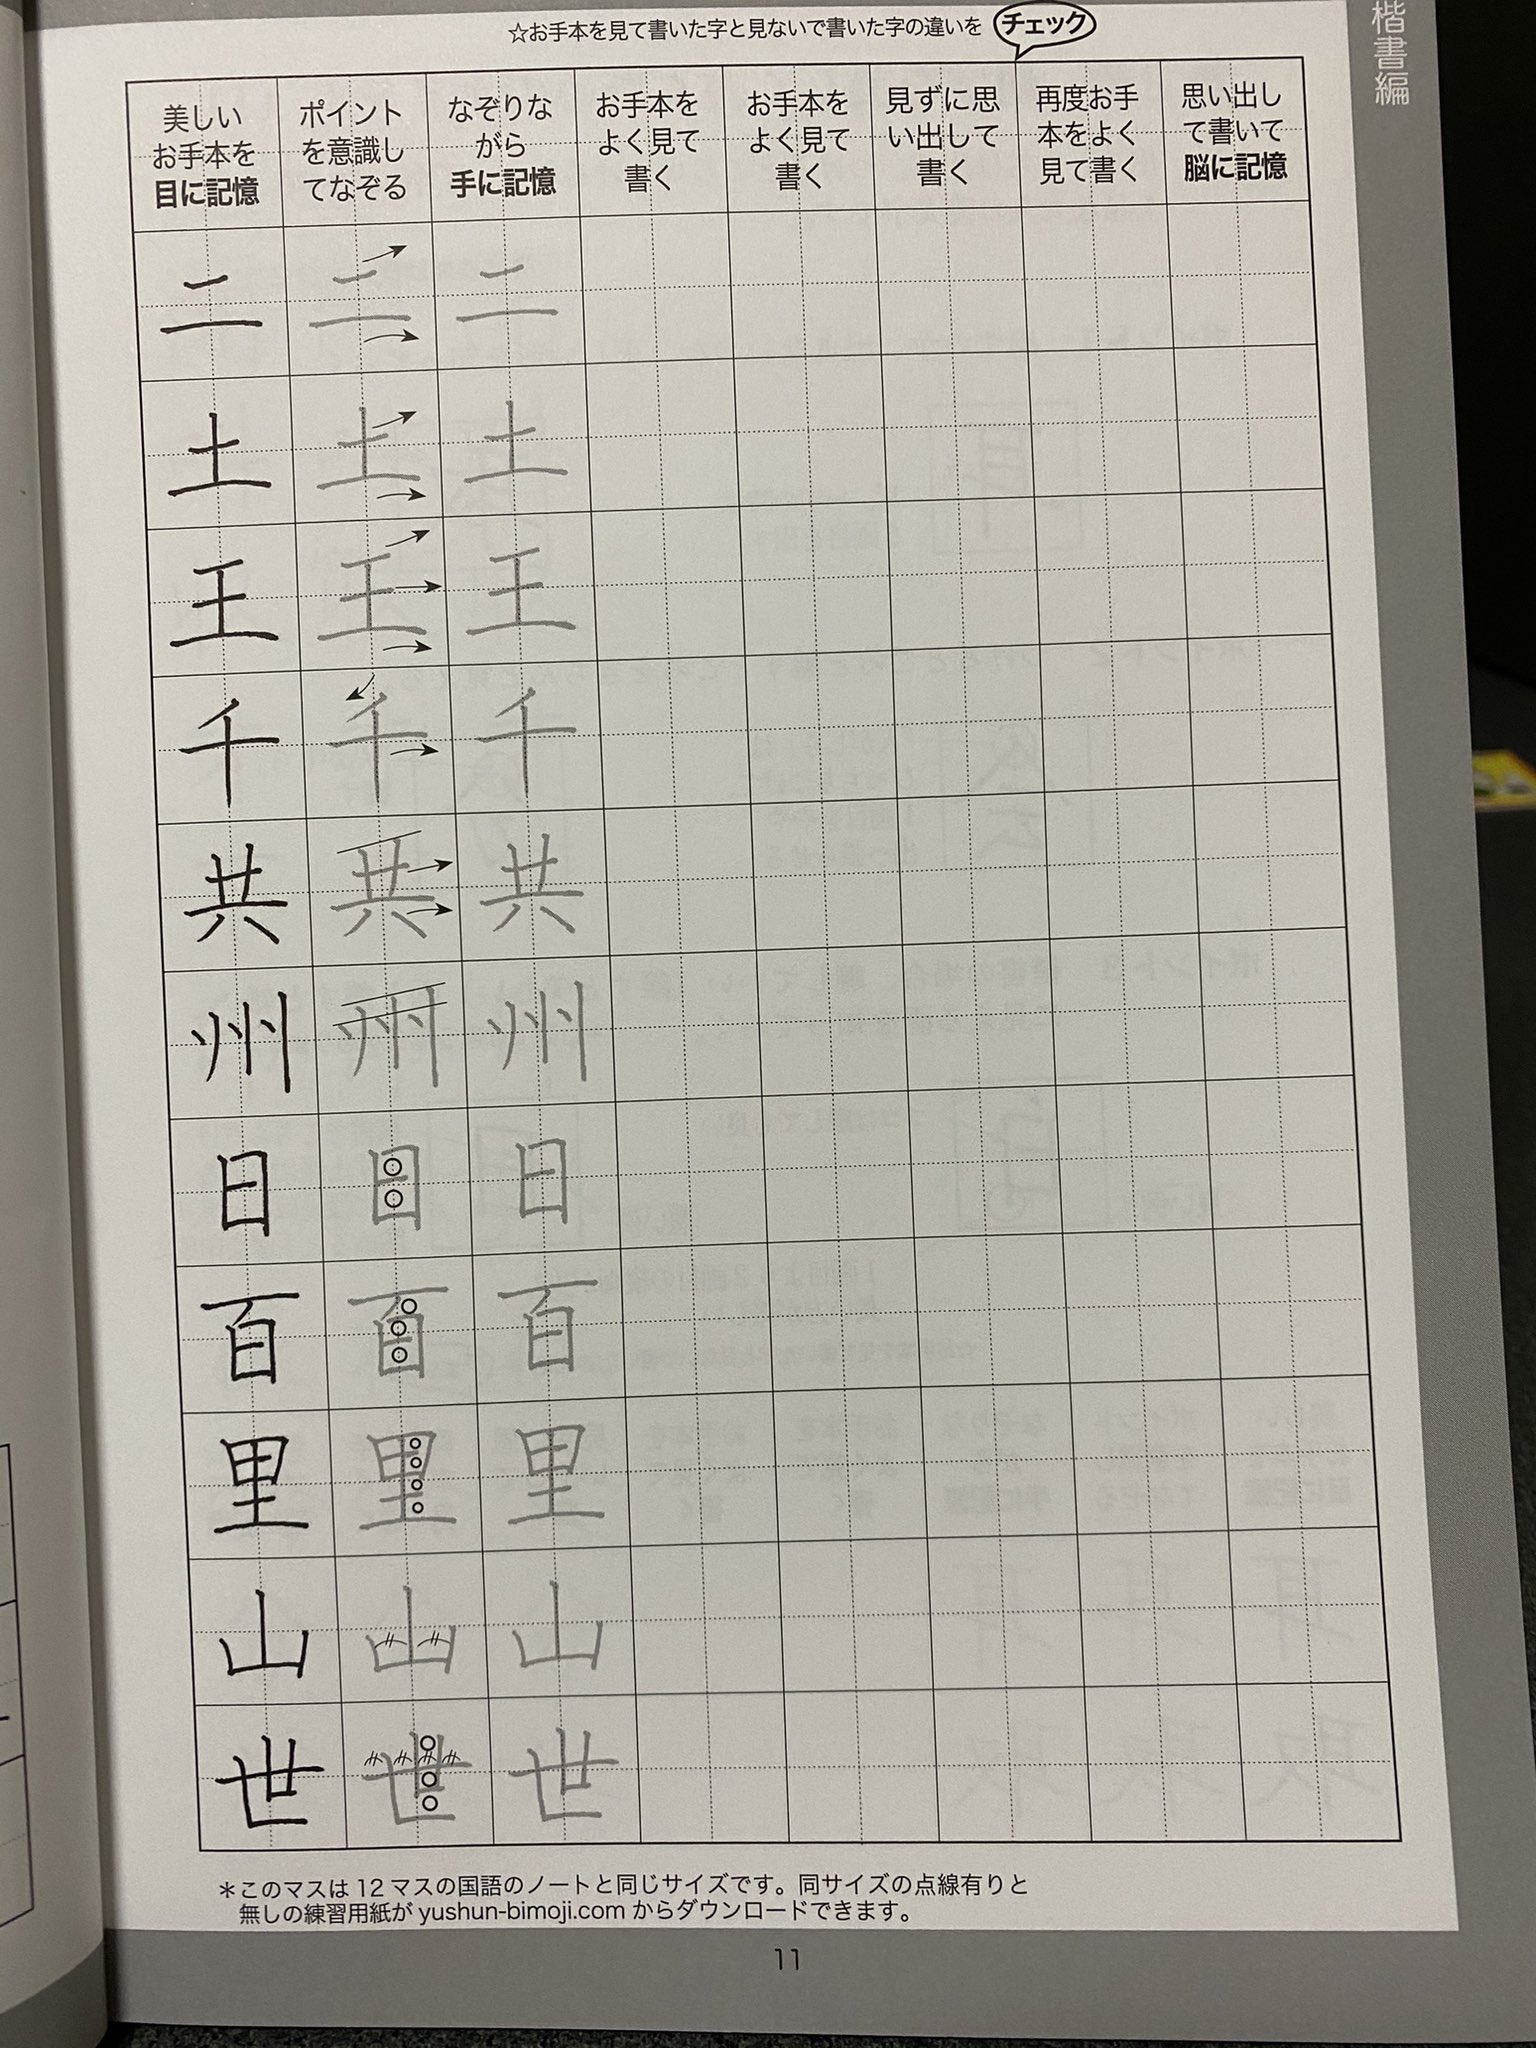 楷書編
☆お手本を見て書いた字と見ないで書いた字の違いを チェック
美しい
お手本を
目に記憶
ポイント
を意識し
てなぞる
なぞりな
がら
手に記憶
お手本を
よく見て
書く
お手本を
よく見て
書く
見ずに思
い出して
書く
再度お手
本をよく
見て書く
思い出し
て書いて
脳に記憶
二 二 二
土 土 土
王 王 王
千 千 千
共 共 共
州 州 州
日 日 日
百 百 百
里 里 里
山 山 山
世 世 世
＊このマスは 12 マスの国語のノートと同じサイズです。同サイズの点線有りと
無しの練習用紙が yushun-bimoji.com からダウンロードできます。
11